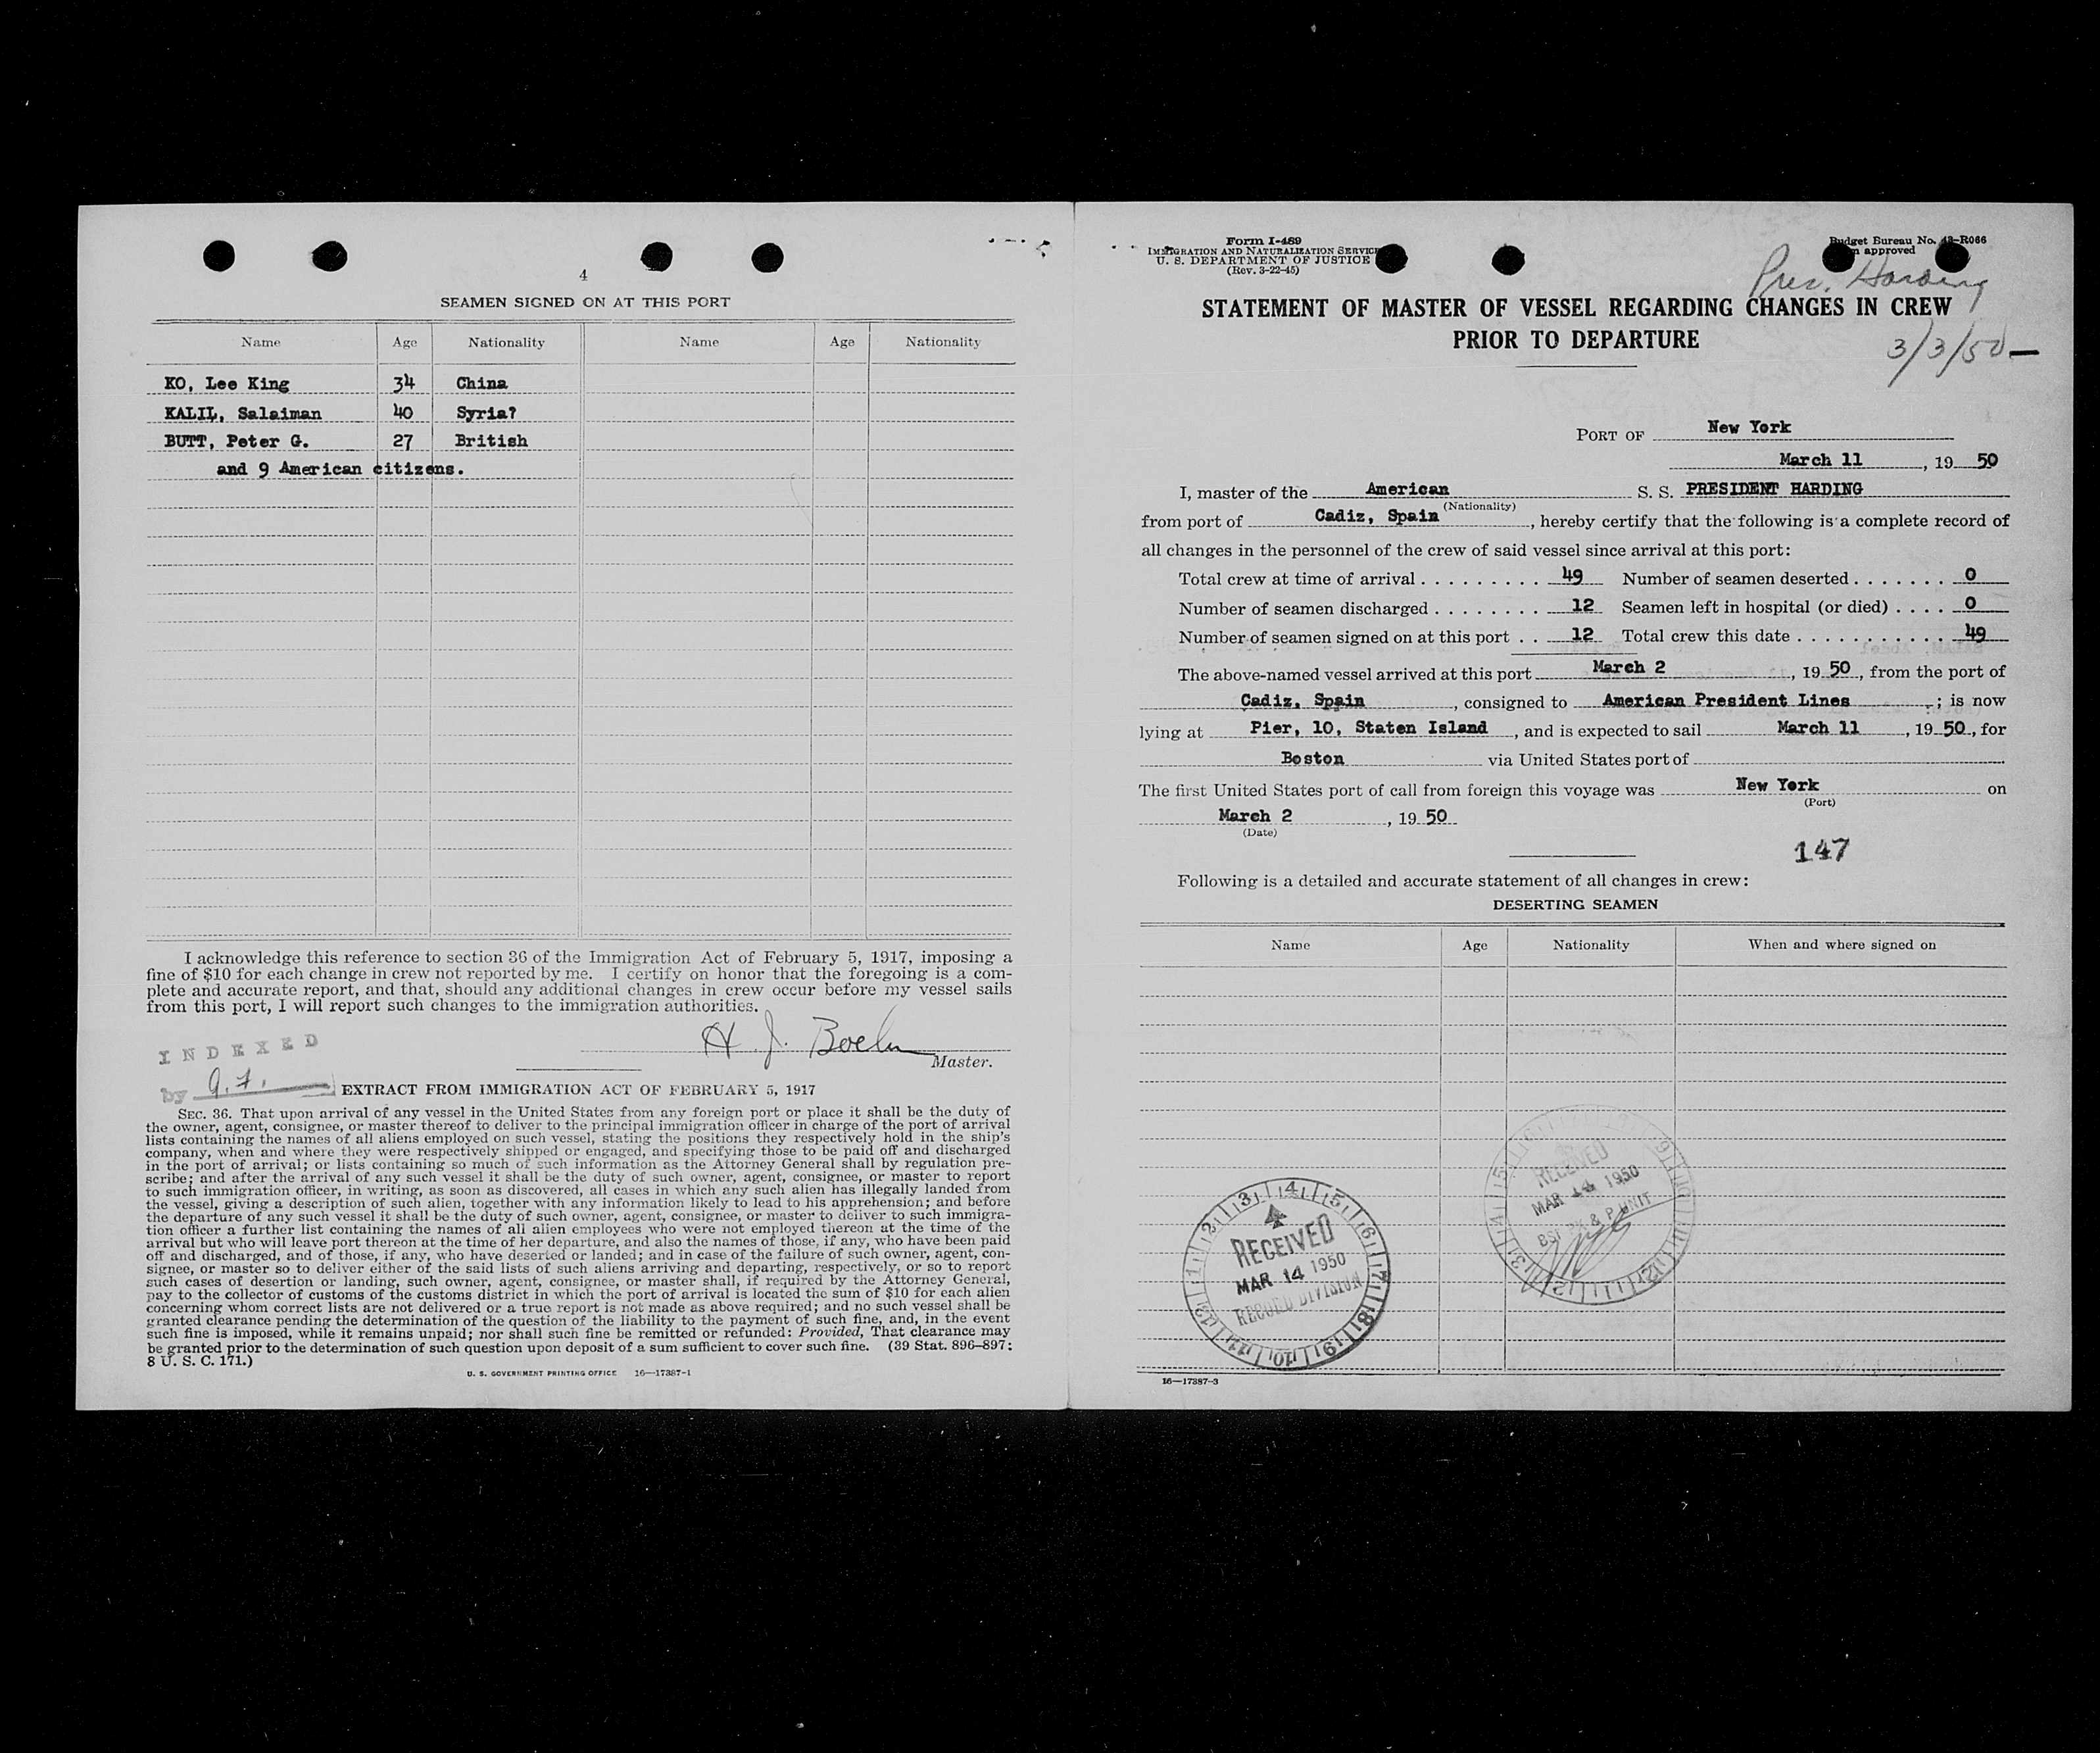 4
SEAMEN SIGNED ON AT THIS PORT
Name Age Nationality Name Age Nationality
KO, Lee King 34 China
KALIL, Salaiman 40 Syria?
BUTT, Peter G. 27 British
and 9 American citizens.
I acknowledge this reference to section 36 of the Immigration Act of February 5, 1917, imposing a
fine of $10 for each change in crew not reported by me. I certify on honor that the foregoing is a com-
plete and accurate report, and that, should any additional changes in crew occur before my vessel sails
from this port, I will report such changes to the immigration authorities.
H. J. Boehn
Master.
INDEXED
by
EXTRACT FROM IMMIGRATION ACT OF FEBRUARY 5, 1917
SEC. 36. That upon arrival of any vessel in the United States from any foreign port or place it shall be the duty of
the owner, agent, consignee, or master thereof to deliver to the principal immigration officer in charge of the port of arrival
lists containing the names of all aliens employed on such vessel, stating the positions they respectively hold in the ship's
company, when and where they were respectively shipped or engaged, and specifying those to be paid off and discharged
in the port of arrival; or lists containing so much of such information as the Attorney General shall by regulation pre-
scribe; and after the arrival of any such vessel it shall be the duty of such owner, agent, consignee, or master to report
to such immigration officer, in writing, as soon as discovered, all cases in which any such alien has illegally landed from
the vessel, giving a description of such alien, together with any information likely to lead to his apprehension; and before
the departure of any such vessel it shall be the duty of such owner, agent, consignee, or master to deliver to such immigra-
tion officer a further list containing the names of all alien employees who were not employed thereon at the time of the
arrival but who will leave port thereon at the time of her departure, and also the names of those, if any, who have been paid
off and discharged, and of those, if any, who have deserted or landed; and in case of the failure of such owner, agent, con-
signee, or master so to deliver either of the said lists of such aliens arriving and departing, respectively, or so to report
such cases of desertion or landing, such owner, agent, consignee, or master shall, if required by the Attorney General,
pay to the collector of customs of the customs district in which the port of arrival is located the sum of $10 for each alien
concerning whom correct lists are not delivered or a true report is not made as above required; and no such vessel shall be
granted clearance pending the determination of the question of the liability to the payment of such fine, and, in the event
such fine is imposed, while it remains unpaid; nor shall such fine be remitted or refunded: Provided, That clearance may
be granted prior to the determination of such question upon deposit of a sum sufficient to cover such fine. (39 Stat. 896-897;
8 U. S. C. 171.)
U. S. GOVERNMENT PRINTING OFFICE 16—17387-1
Form I-489
IMMIGRATION AND NATURALIZATION SERVICE
U. S. DEPARTMENT OF JUSTICE
(Rev. 3-22-45)
Budget Bureau No. 43-R066
approved
Pres. Harding
STATEMENT OF MASTER OF VESSEL REGARDING CHANGES IN CREW
PRIOR TO DEPARTURE
3/3/50
PORT OF New York
March 11, 19 50
I, master of the American S. S. PRESIDENT HARDING
(Nationality)
from port of Cadiz, Spain, hereby certify that the following is a complete record of
all changes in the personnel of the crew of said vessel since arrival at this port:
Total crew at time of arrival . . . . . . . . . 49 Number of seamen deserted . . . . . . . 0
Number of seamen discharged . . . . . . . . 12 Seamen left in hospital (or died) . . . . 0
Number of seamen signed on at this port . . 12 Total crew this date . . . . . . . . . . . 49
The above-named vessel arrived at this port March 2, 19 50, from the port of
Cadiz, Spain, consigned to American President Lines; is now
lying at Pier, 10, Staten Island, and is expected to sail March 11, 19 50, for
Boston via United States port of
The first United States port of call from foreign this voyage was New York on
(Port)
March 2, 19 50
(Date)
147
Following is a detailed and accurate statement of all changes in crew:
DESERTING SEAMEN
Name Age Nationality When and where signed on
RECEIVED
MAR 14 1950
RECORD DIVISION
RECEIVED
MAR 14 1950
16—17387-3